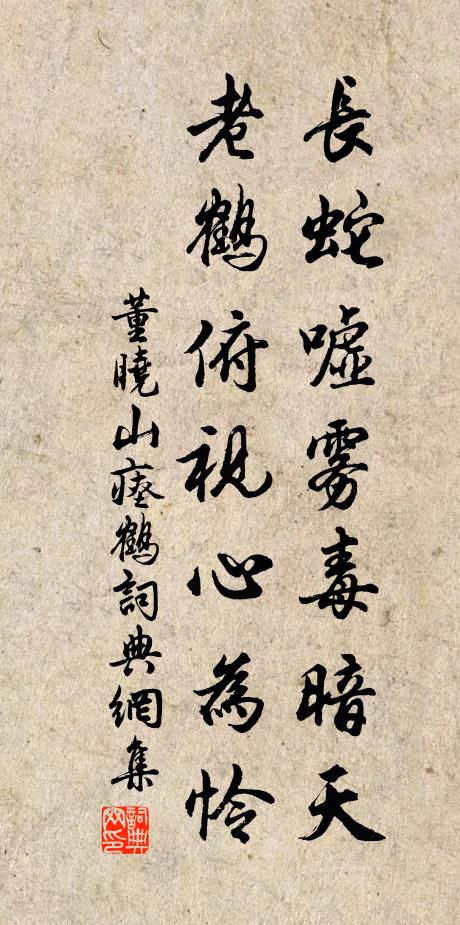 長蛇嘘雾毒暗天
老鶴俯視心為怜
董曉山瘗鶴詞典網集
詞典網印